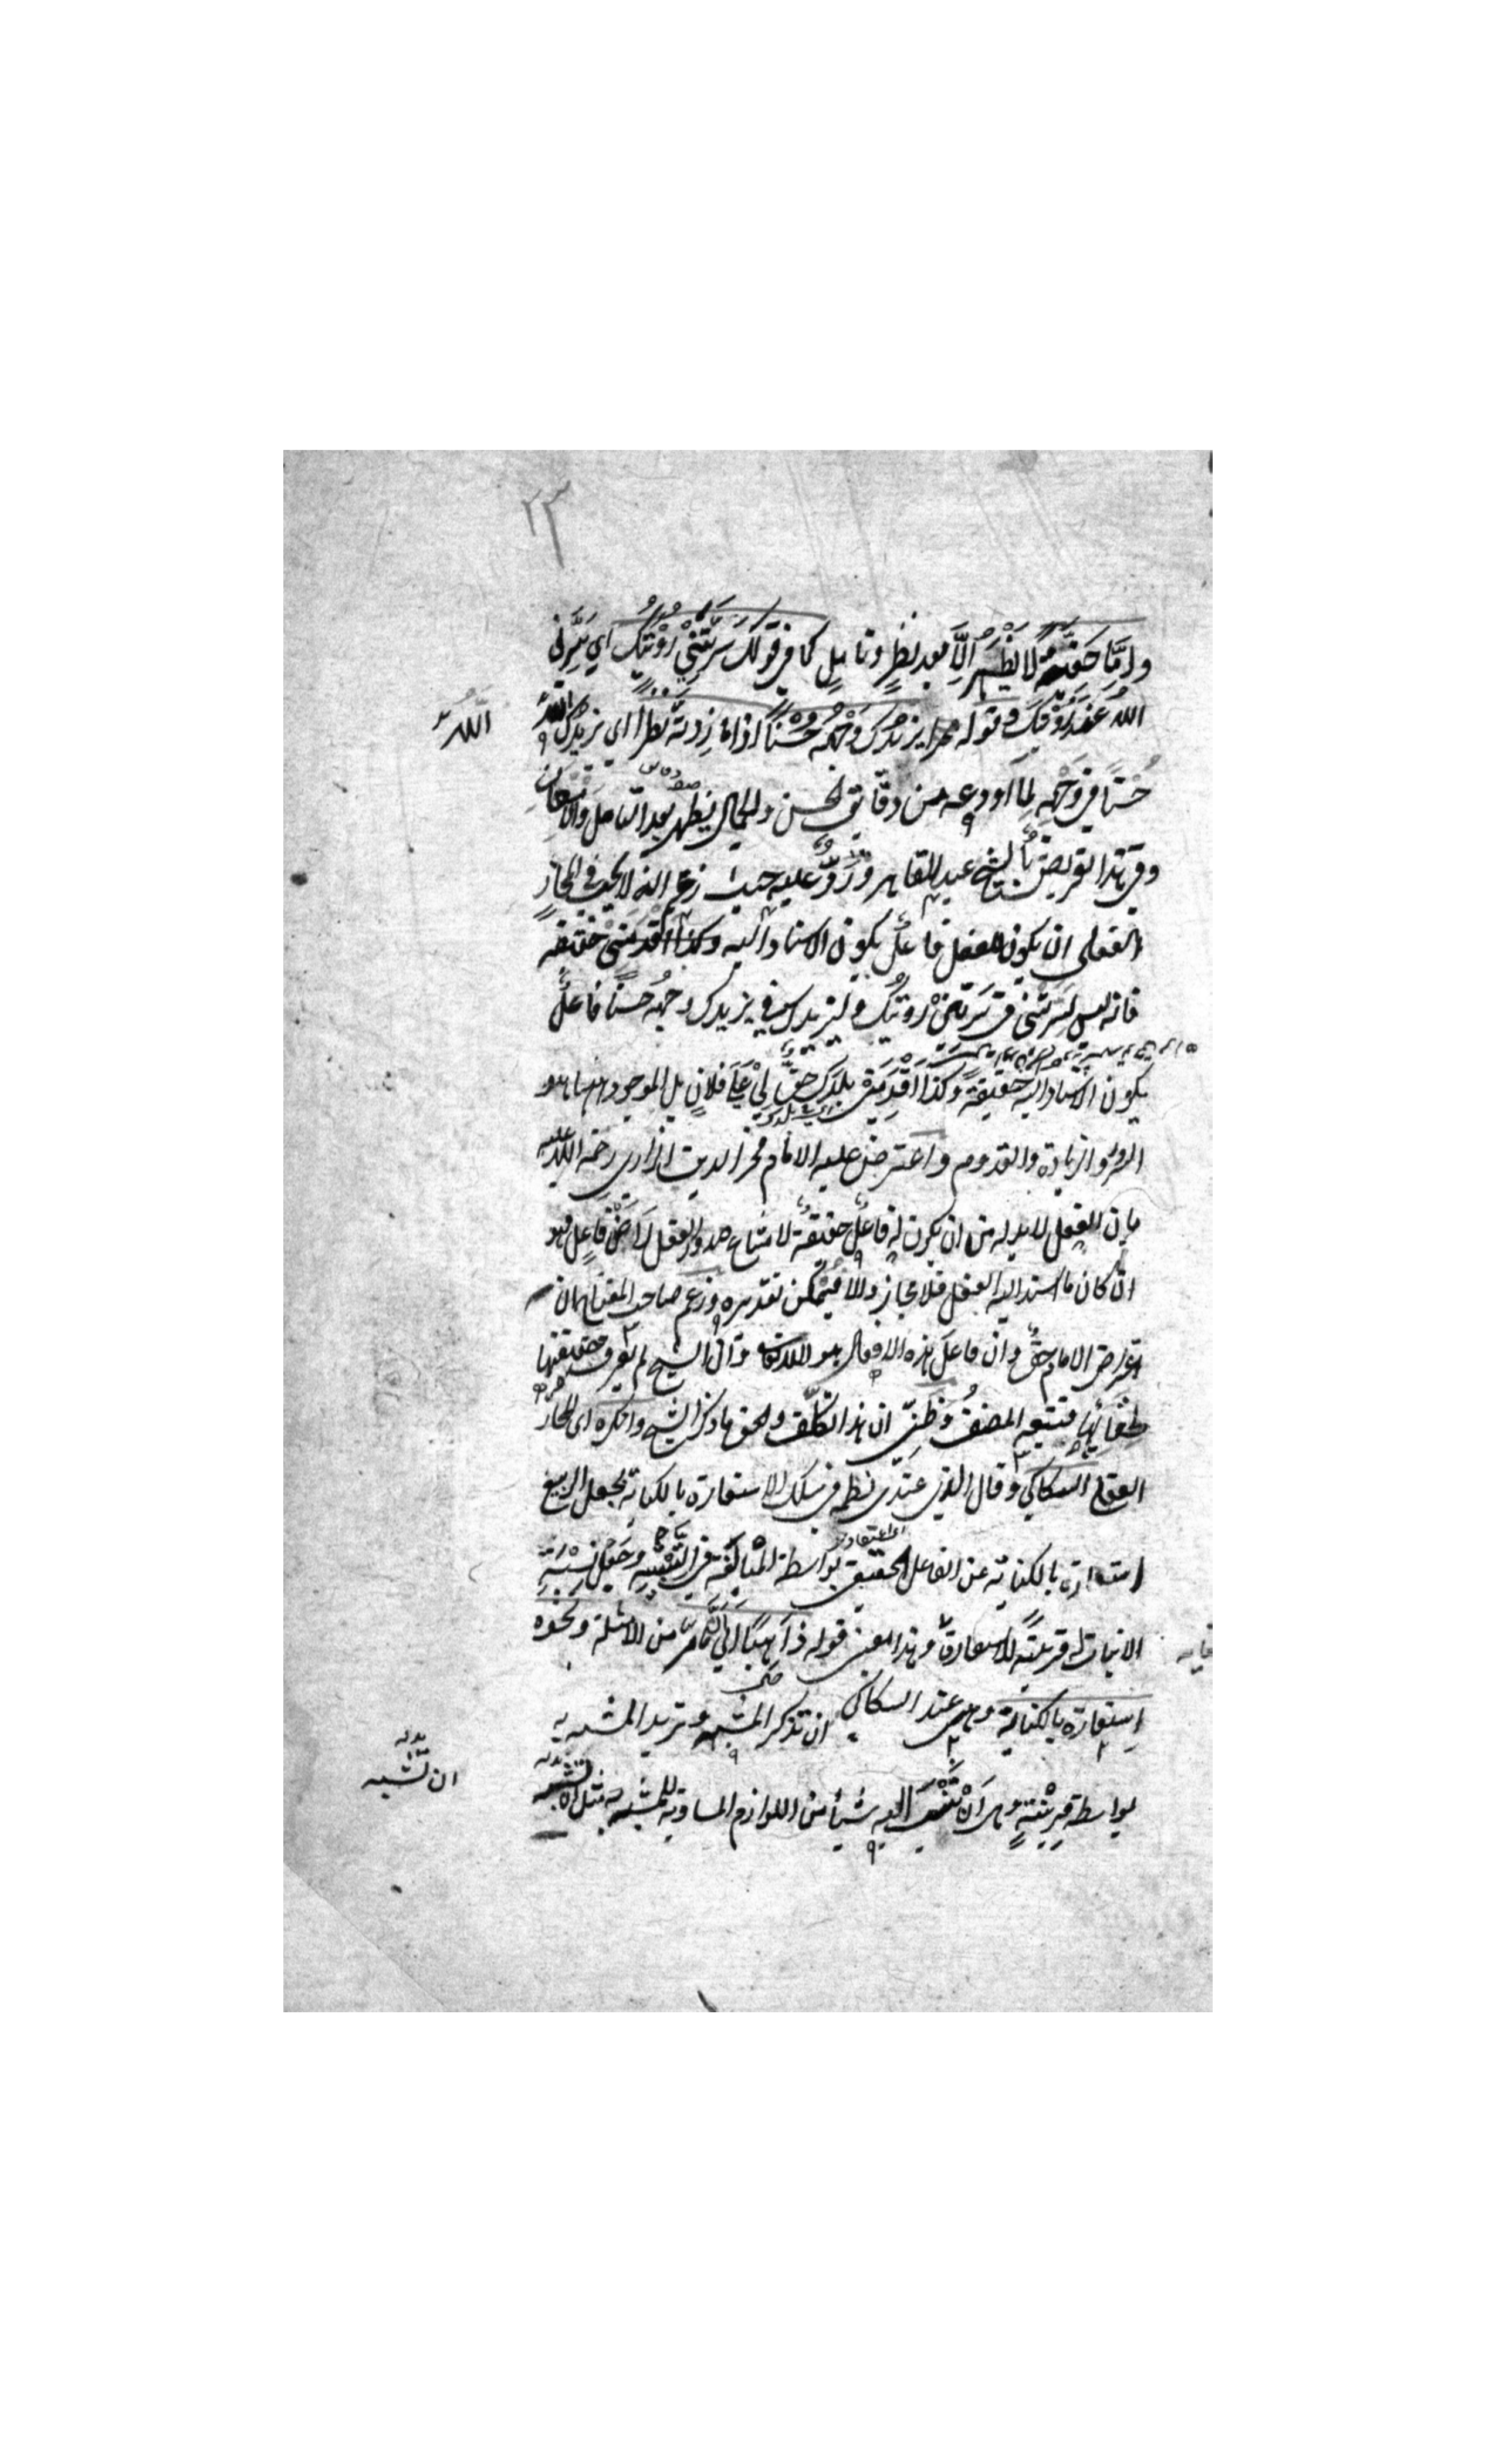 ٢٣
واما خفية لا يظهر الا بعد نظر وتامل كما في قولك سرتني رؤيتك اي سرني
الله عند رؤيتك وقوله يزيدك وجهه حسنا اذا ما زدته نظرا اي يزيدك الله
الله
حسنا في وجهه لما اودعه من دقائق الحسن والجمال يظهر بعد التامل والامعان
وفي هذا تعريض بالشيخ عبد القاهر ورد عليه حيث زعم انه لا يجب في المجاز
العقلي ان يكون للفعل فاعل يكون الاسناد اليه حقيقة
فانه ليس لسرتني في سرتني رؤيتك وليزيدك في يزيدك وجهه حسنا فاعل
يكون الاسناد اليه حقيقة وكذا اقدمني بلدك حق لي على فلان بل الموجود ههنا هو
السرور والزيادة والقدوم واعترض عليه الامام فخر الدين الرازي رحمة الله عليه
بان الفعل لابد له من ان يكون له فاعل حقيقة لامتناع صدور الفعل لا عن فاعل فهو
ان كان ما اسند اليه الفعل فلا مجاز والا فيمكن تقديره وزعم صاحب المفتاح ان
اعتراض الامام حق وان فاعل هذه الافعال هو الله تعالى وان الشيخ لم يعرف حقيقتها
لخفائها فتبعه المصنف وظني ان هذا تكلف والحق ما ذكره الشيخ وانكره اي المجاز
العقلي السكاكي وقال الذي عندي نظمه في سلك الاستعارة بالكناية بجعل الربيع
استعارة بالكناية عن الفاعل الحقيقي بواسطة المبالغة في التشبيه وجعل نسبة
الانبات اليه قرينة للاستعارة وهذا معنى قوله ذاهبا الى ان ما مر من الامثلة ونحوه
استعارة بالكناية وهي عند السكاكي ان تذكر المشبه وتريد المشبه به
بواسطة قرينة وهي ان تنسب اليه شيئا من اللوازم المساوية للمشبه به مثل ان تشبه
ان تشبه